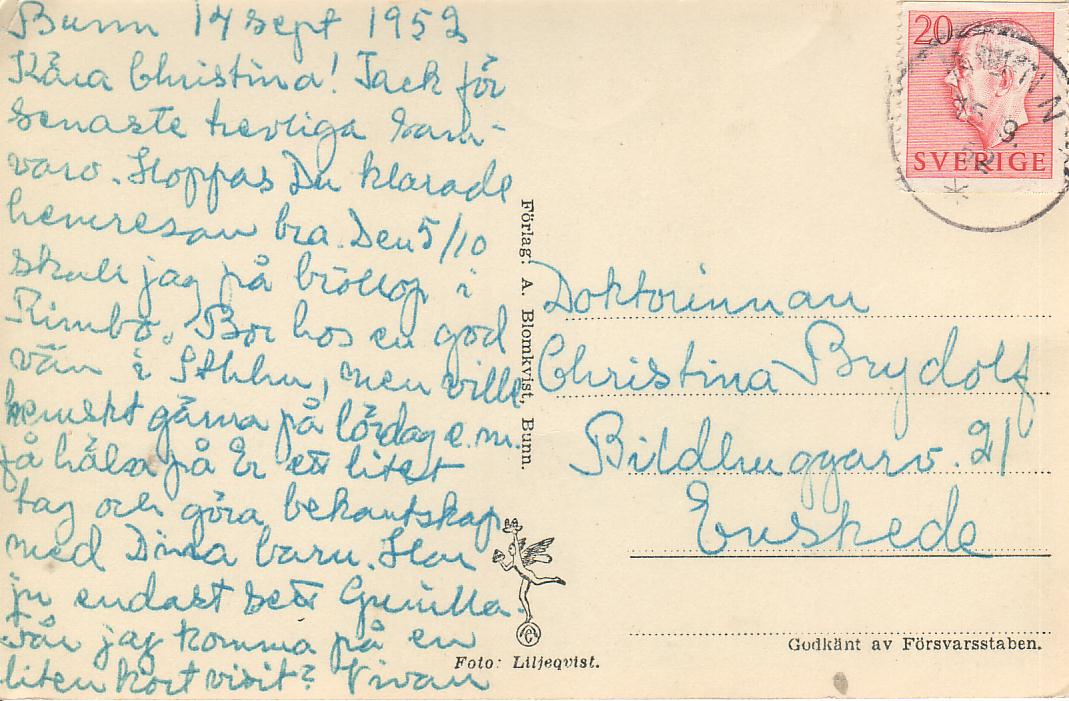 Bunn 14 sept 1952
Kära Christina! Tack för
senaste trevliga sam-
varo. Hoppas Du klarade
hemresan bra. Den 5/10
skall jag på bröllop i
Rimbo. Bor hos en god
vän i Sthlm, men ville
hemskt gärna på lördag e.m.
få hälsa på Er ett litet
tag och göra bekantskap
med Dina barn. Har
ju endast sett Gunilla.
Får jag komma på en
liten kort visit? Vivan
Förlag: A. Blomkvist, Bunn.
Foto: Liljeqvist.
20
SVERIGE
Doktorinnan
Christina Brydolf
Bildhuggarv. 21
Enskede
Godkänt av Försvarsstaben.